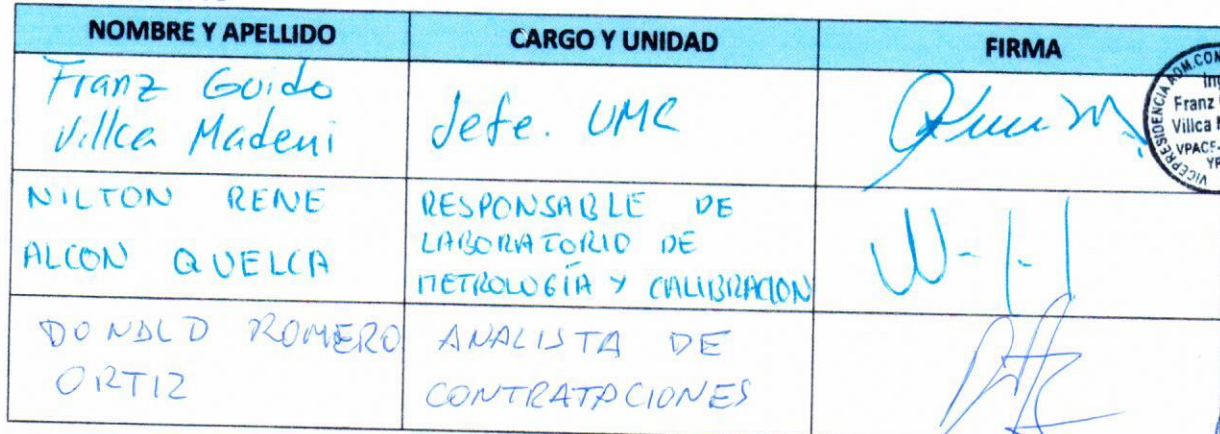 NOMBRE Y APELLIDO CARGO Y UNIDAD FIRMA
Franz Guido
Villca Madeni
Jefe. UMC
NILTON RENE
ALCON QUELCA
RESPONSABLE DE
LABORATORIO DE
METROLOGÍA Y CALIBRACION
DONALD ROMERO
ORTIZ
ANALISTA DE
CONTRATACIONES
Franz
Villca
VPACF-